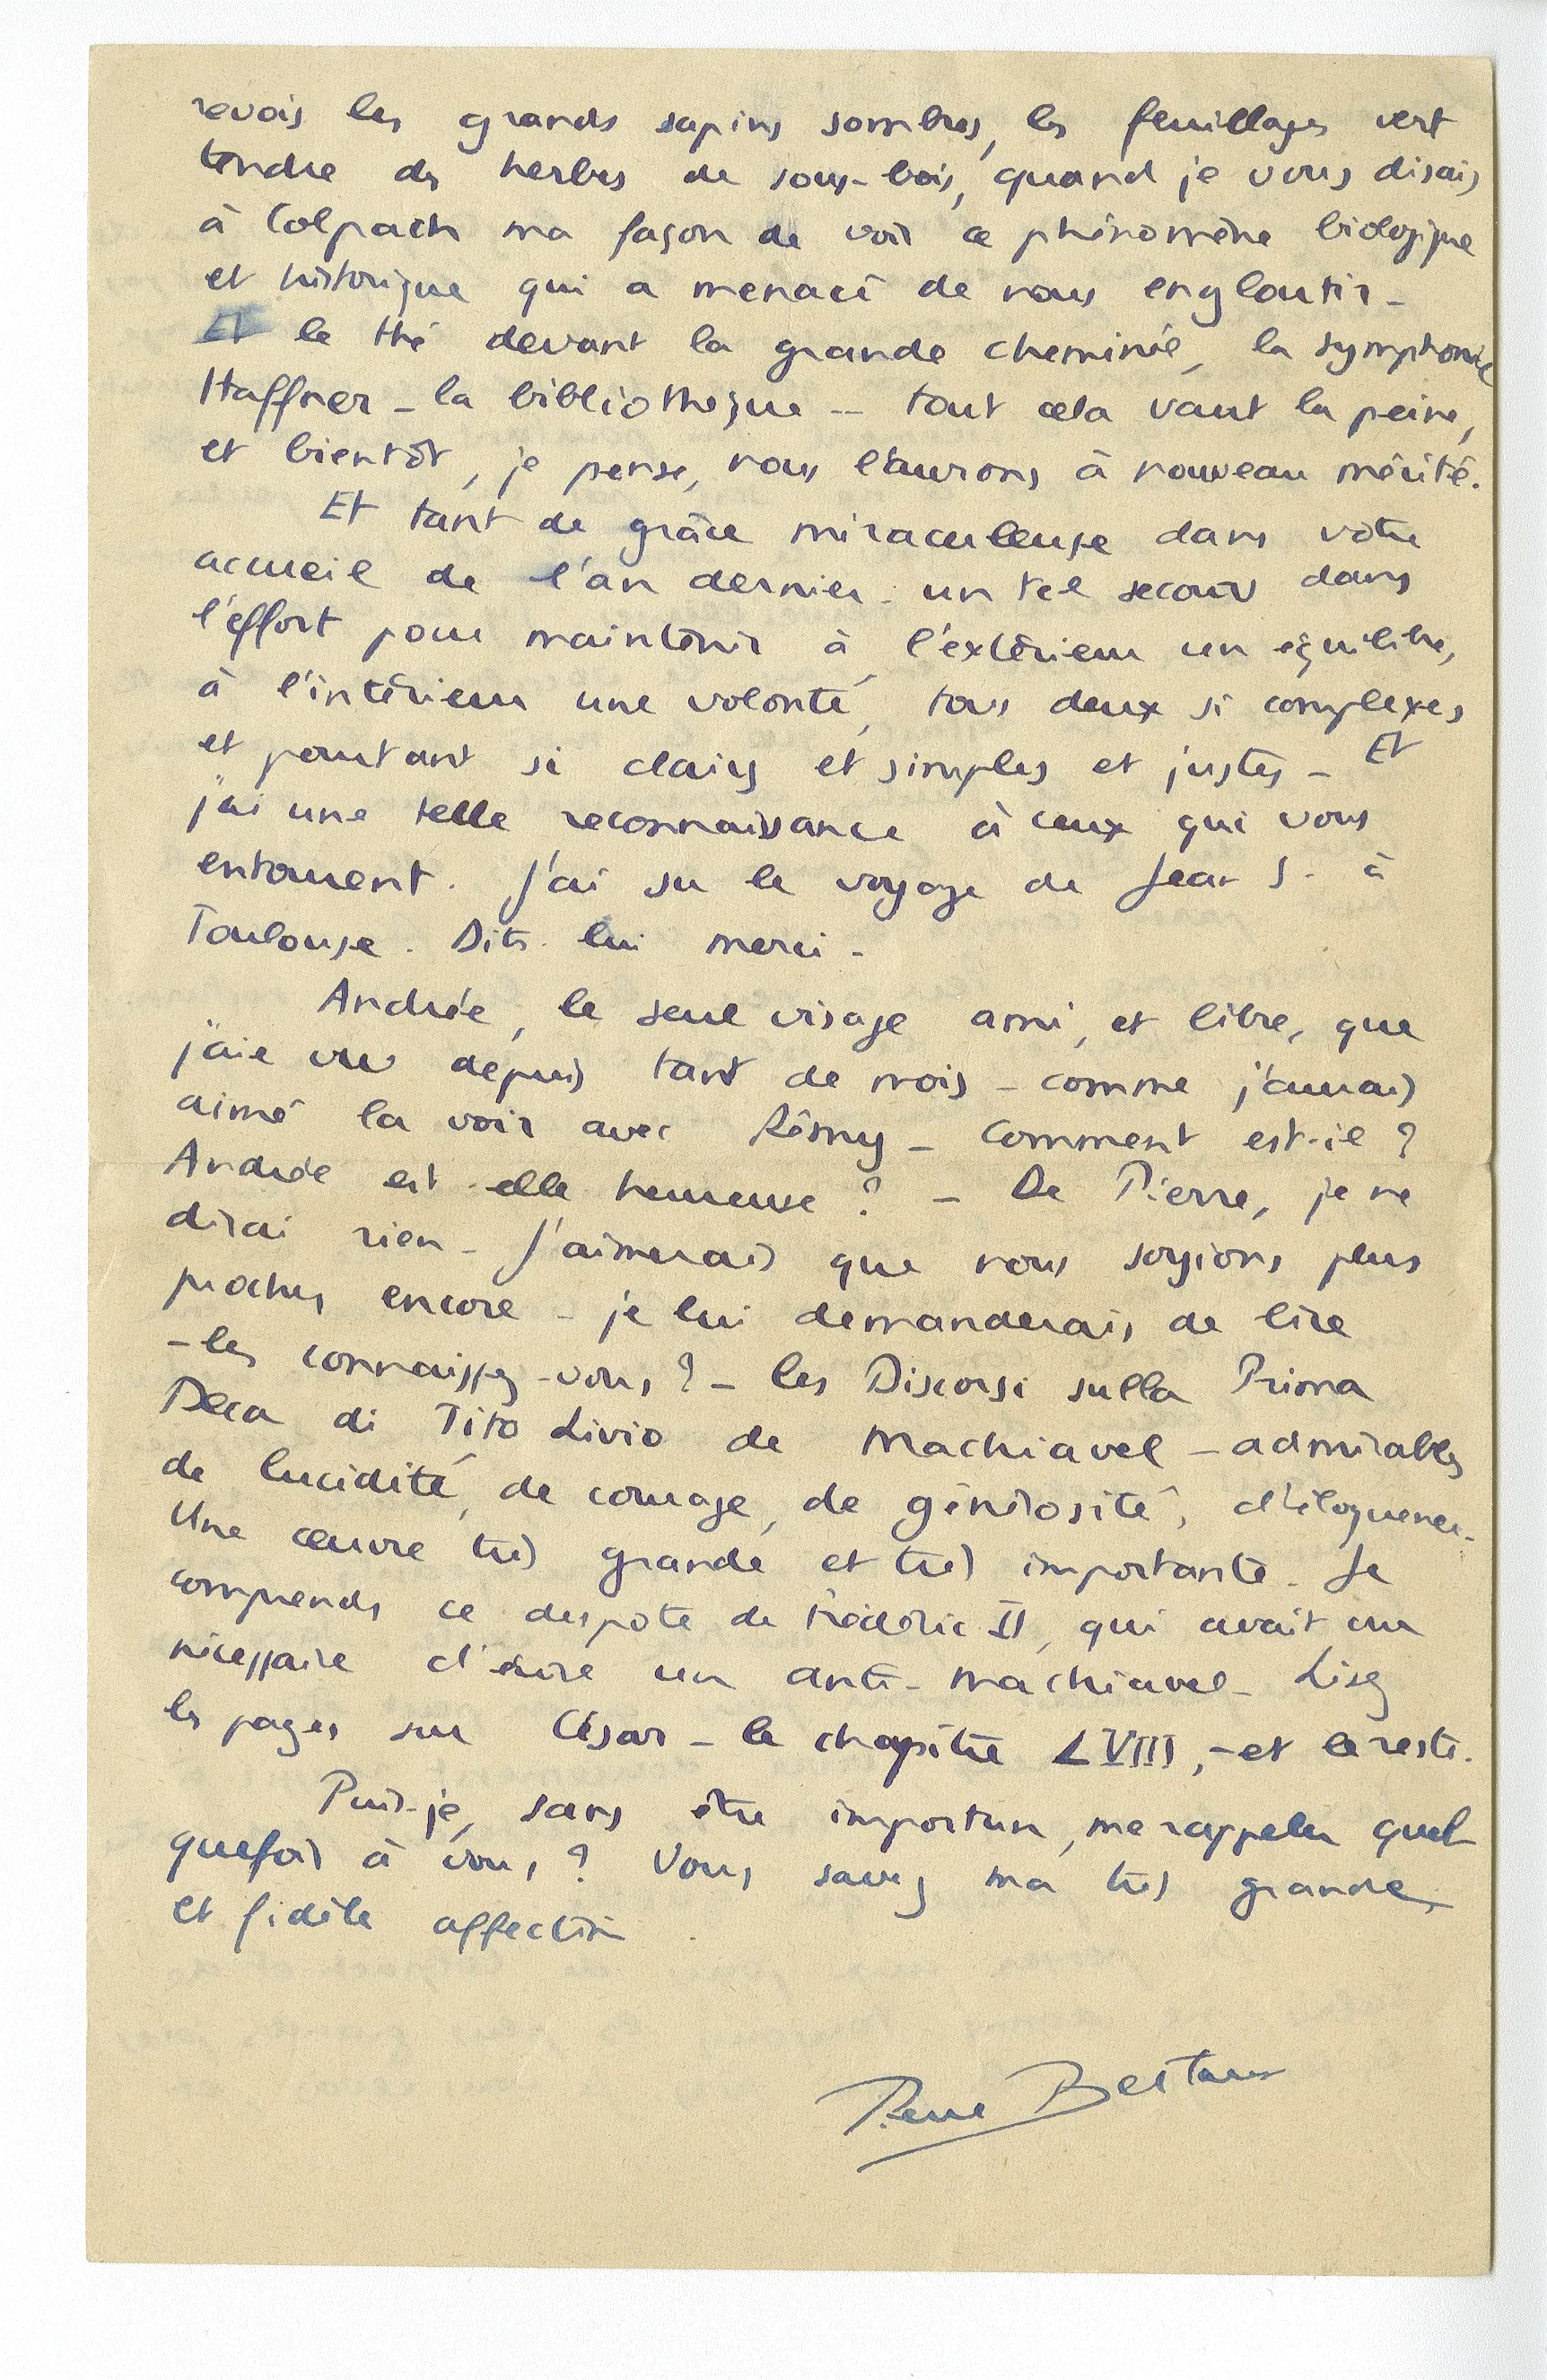 revois les grands sapins sombres, les feuillages vert
tendre des herbes de sous-bois, quand je vous disais
à Colpach ma façon de voir ce phénomène biologique
et historique qui a menacé de nous engloutir -
Et le thé devant la grande cheminée, la symphonie
Haffner - la bibliothèque -- tout cela vaut la peine,
et bientôt, je pense, nous l'aurons à nouveau mérité.
Et tant de grâce miraculeuse dans votre
accueil de l'an dernier - un tel secours dans
l'effort pour maintenir à l'extérieur un équilibre,
à l'intérieur une volonté, tous deux si complexes
et pourtant si clairs et simples et justes - Et
j'ai une telle reconnaissance à ceux qui vous
entourent. J'ai su le voyage de Jean S. à
Toulouse. Dites-lui merci -
Andrée, le seul visage ami, et libre, que
j'aie vu depuis tant de mois - comme j'aurais
aimé la voir avec Rémy - Comment est-il ?
Andrée est-elle heureuse ? - De Pierre, je ne
dirai rien - J'aimerais que nous soyions plus
proches encore - je lui demanderais de lire
- les connaissez-vous ? - les Discorsi sulla Prima
Deca di Tito Livio de Machiavel - admirables
de lucidité, de courage, de générosité, d'éloquence -
Une œuvre très grande et très importante. Je
comprends ce despote de Frédéric II, qui avait cru
nécessaire d'écrire un anti-Machiavel - Lisez
les pages sur César - le chapitre LVIII, - et le reste.
Puis-je, sans être importun, me rappeler quel
quefois à vous ? Vous savez ma très grande
et fidèle affection.
René Bertaux